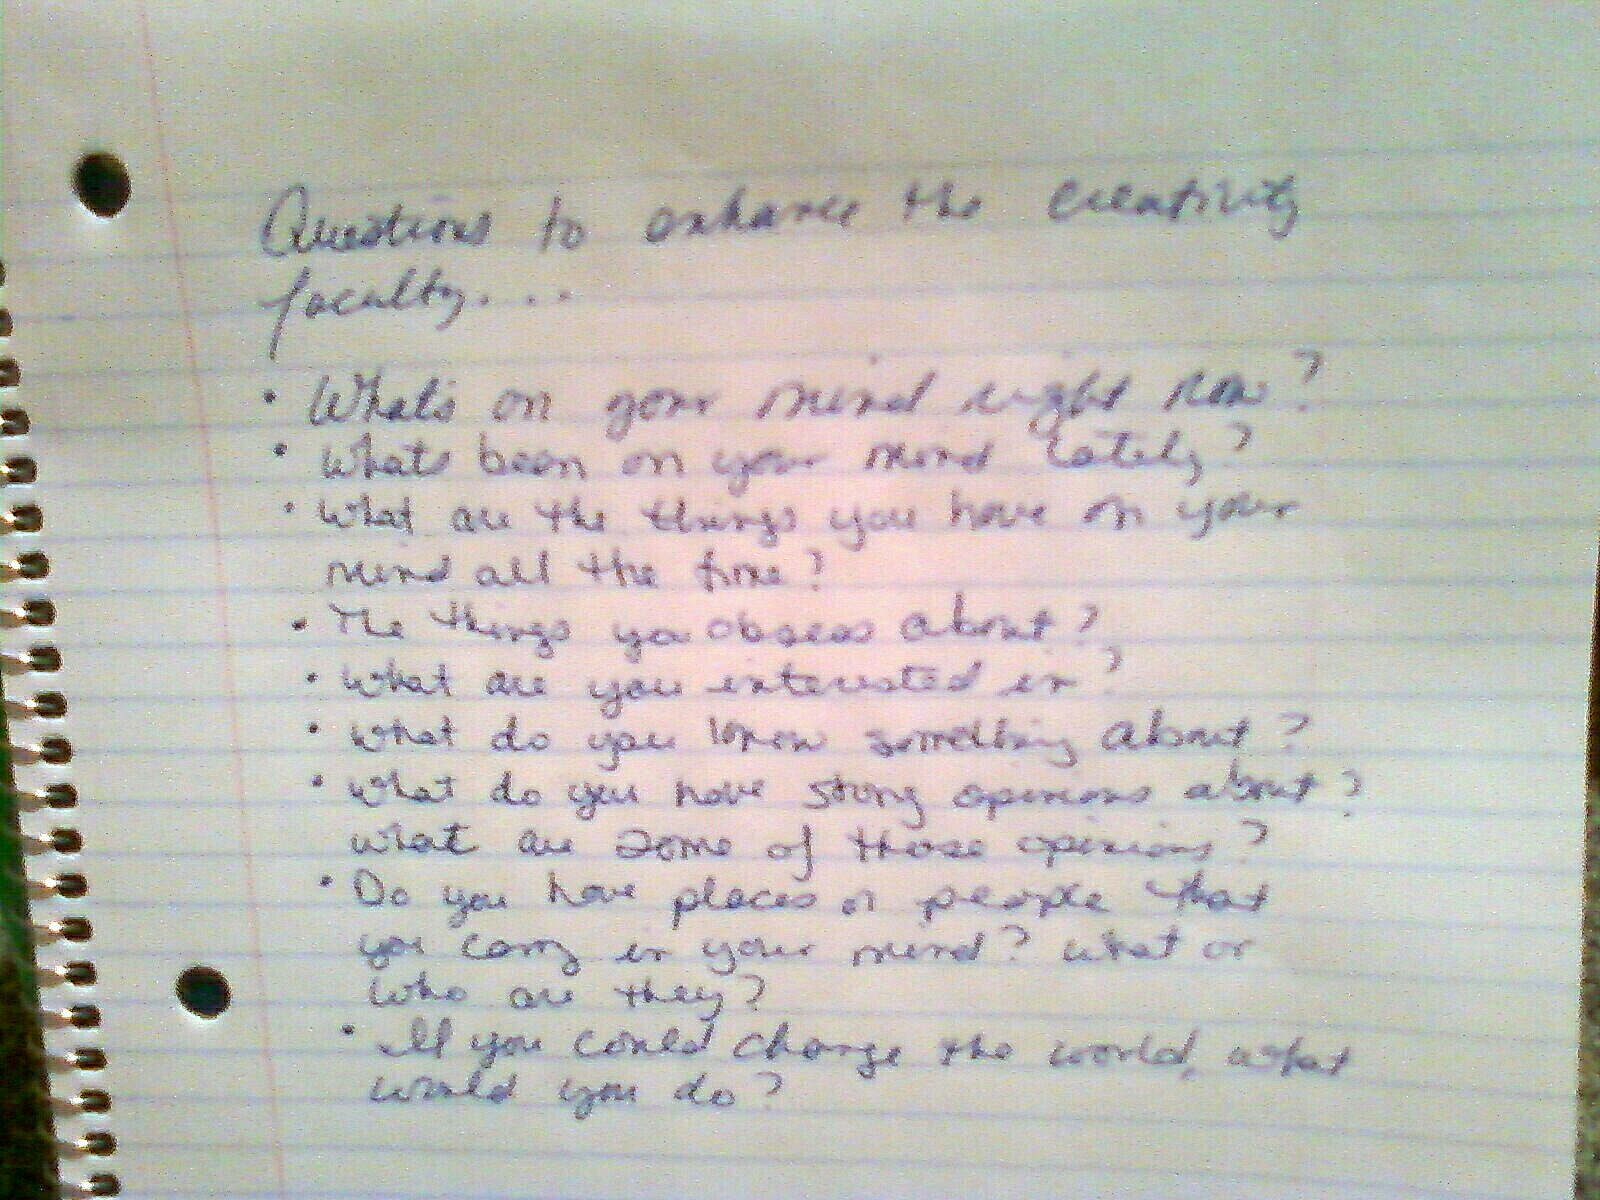 Questions to enhance the creativity
faculty...
• What's on your mind right now?
• Whats been on your mind lately?
• What are the things you have on your
mind all the time?
• The things you obsess about?
• What are you interested in?
• What do you know something about?
• What do you have strong opinions about?
What are some of those opinions?
• Do you have places or people that
you carry in your mind? What or
who are they?
• If you could change the world, what
would you do?